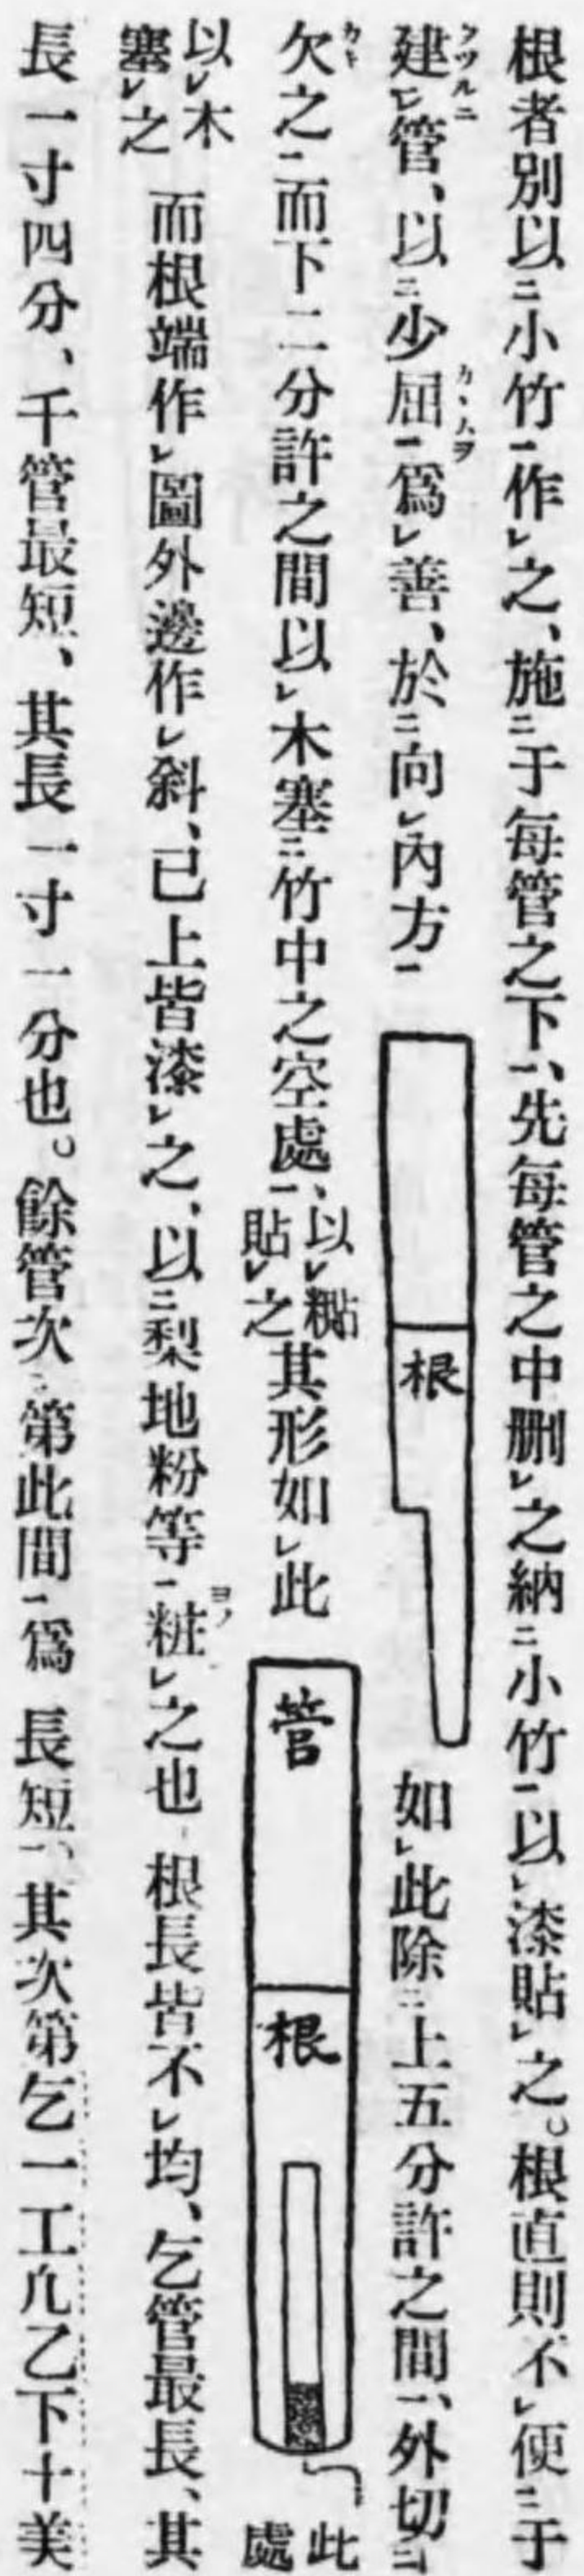 根者別以㆓小竹㆒作㆑之、施㆓于每管之下㆒、先每管之中刪㆑之納㆓小竹㆒以㆑漆貼㆑之。根直則不㆑便㆓于
建㆑管、以㆓少屈㆒爲㆑善、於㆓向㆑內方㆒
根
如㆑此除㆓上五分許之間㆒、外切㆓
欠之㆓而下二分許之間以㆑木塞㆓竹中之空處㆒、
以㆑糊
貼㆑之
其形如㆑此
管
根
此
處
以㆑木
塞㆑之
而根端作㆑圖外邊作㆑斜、已上皆漆㆑之、以㆓梨地粉等㆒粧㆑之也 根長皆不㆑均、乞管最長、其
長一寸四分、千管最短、其長一寸一分也。餘管次第此間㆒爲 長短㆒、其次第乞一工九乙下十美